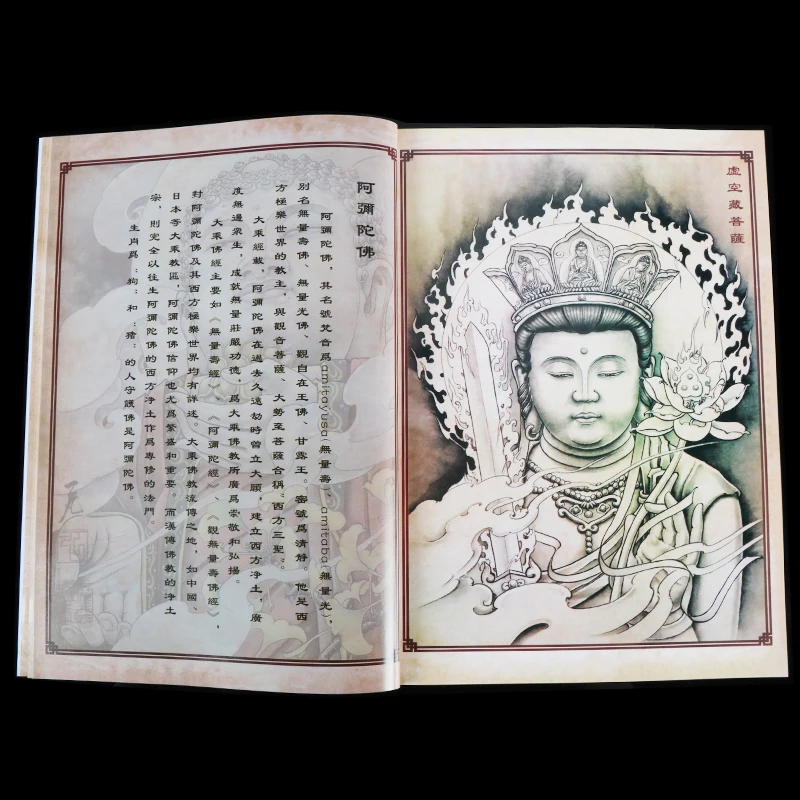 虛空藏菩薩
阿彌陀佛
阿彌陀佛，其名號梵音爲amitayusa(無量壽)，amitaba(無量光)，
別名無量壽佛、無量光佛、觀自在王佛、甘露王。密號爲清靜。他是西
方極樂世界的教主，與觀音菩薩、大勢至菩薩合稱"西方三聖"。
大乘經載，阿彌陀佛在過去久遠劫時曾立大願，建立西方净土，廣
度無邊衆生，成就無量莊嚴功德，爲大乘佛教所廣爲崇敬和弘揚。
大乘佛經主要如《無量壽經》《阿彌陀經》《觀無量壽佛經》，
對阿彌陀佛及其西方極樂世界均有詳述。大乘佛教流傳之地，如中國、
日本等大乘教區，阿彌陀佛信仰也尤爲繁盛和重要。而漢傳佛教的净土
宗，則完全以往生阿彌陀佛的西方净土作爲專修的法門。
生肖爲:狗:和:猪:的人守護佛是阿彌陀佛。